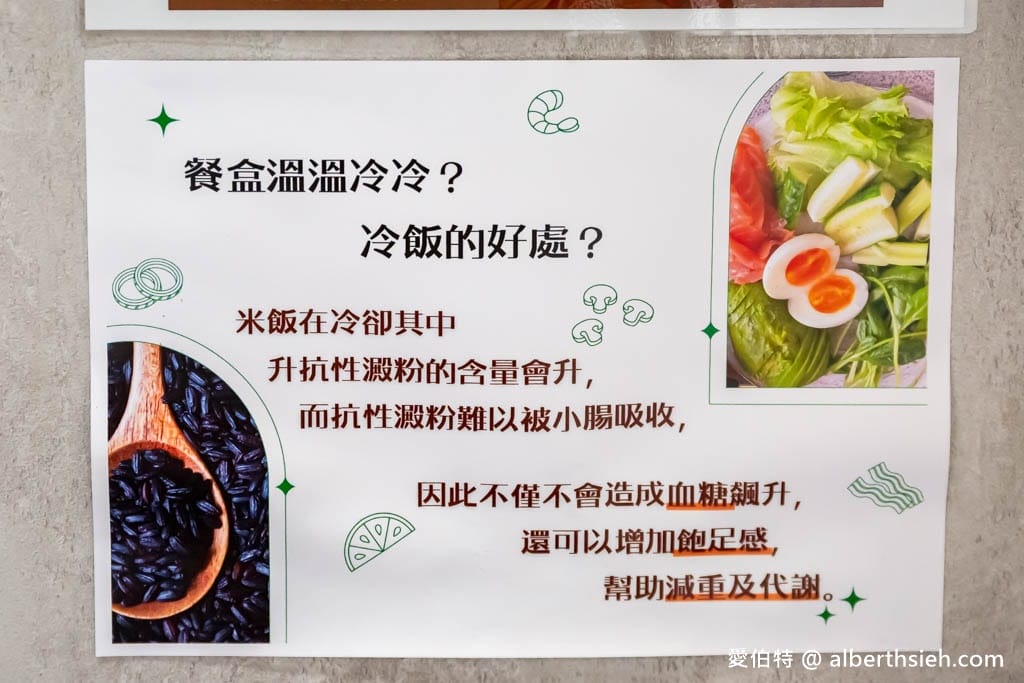 餐盒溫溫冷冷？
冷飯的好處？
米飯在冷卻其中
升抗性澱粉的含量會升，
而抗性澱粉難以被小腸吸收，
因此不僅不會造成血糖飆升，
還可以增加飽足感，
幫助減重及代謝。
愛伯特 @ alberthsieh.com